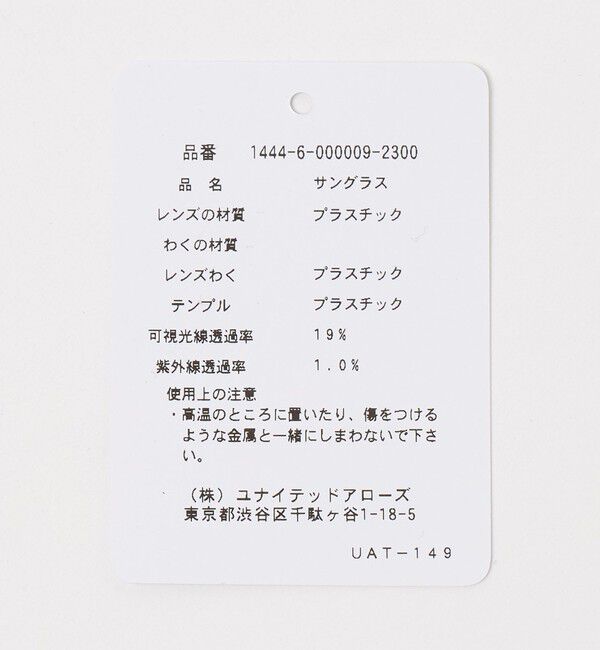 品番 1444-6-000009-2300
品 名 サングラス
レンズの材質 プラスチック
わくの材質
レンズわく プラスチック
テンプル プラスチック
可視光線透過率 19%
紫外線透過率 1.0%
使用上の注意
・高温のところに置いたり、傷をつける
ような金属と一緒にしまわないで下さ
い。
(株)ユナイテッドアローズ
東京都渋谷区千駄ヶ谷1-18-5
UAT-149